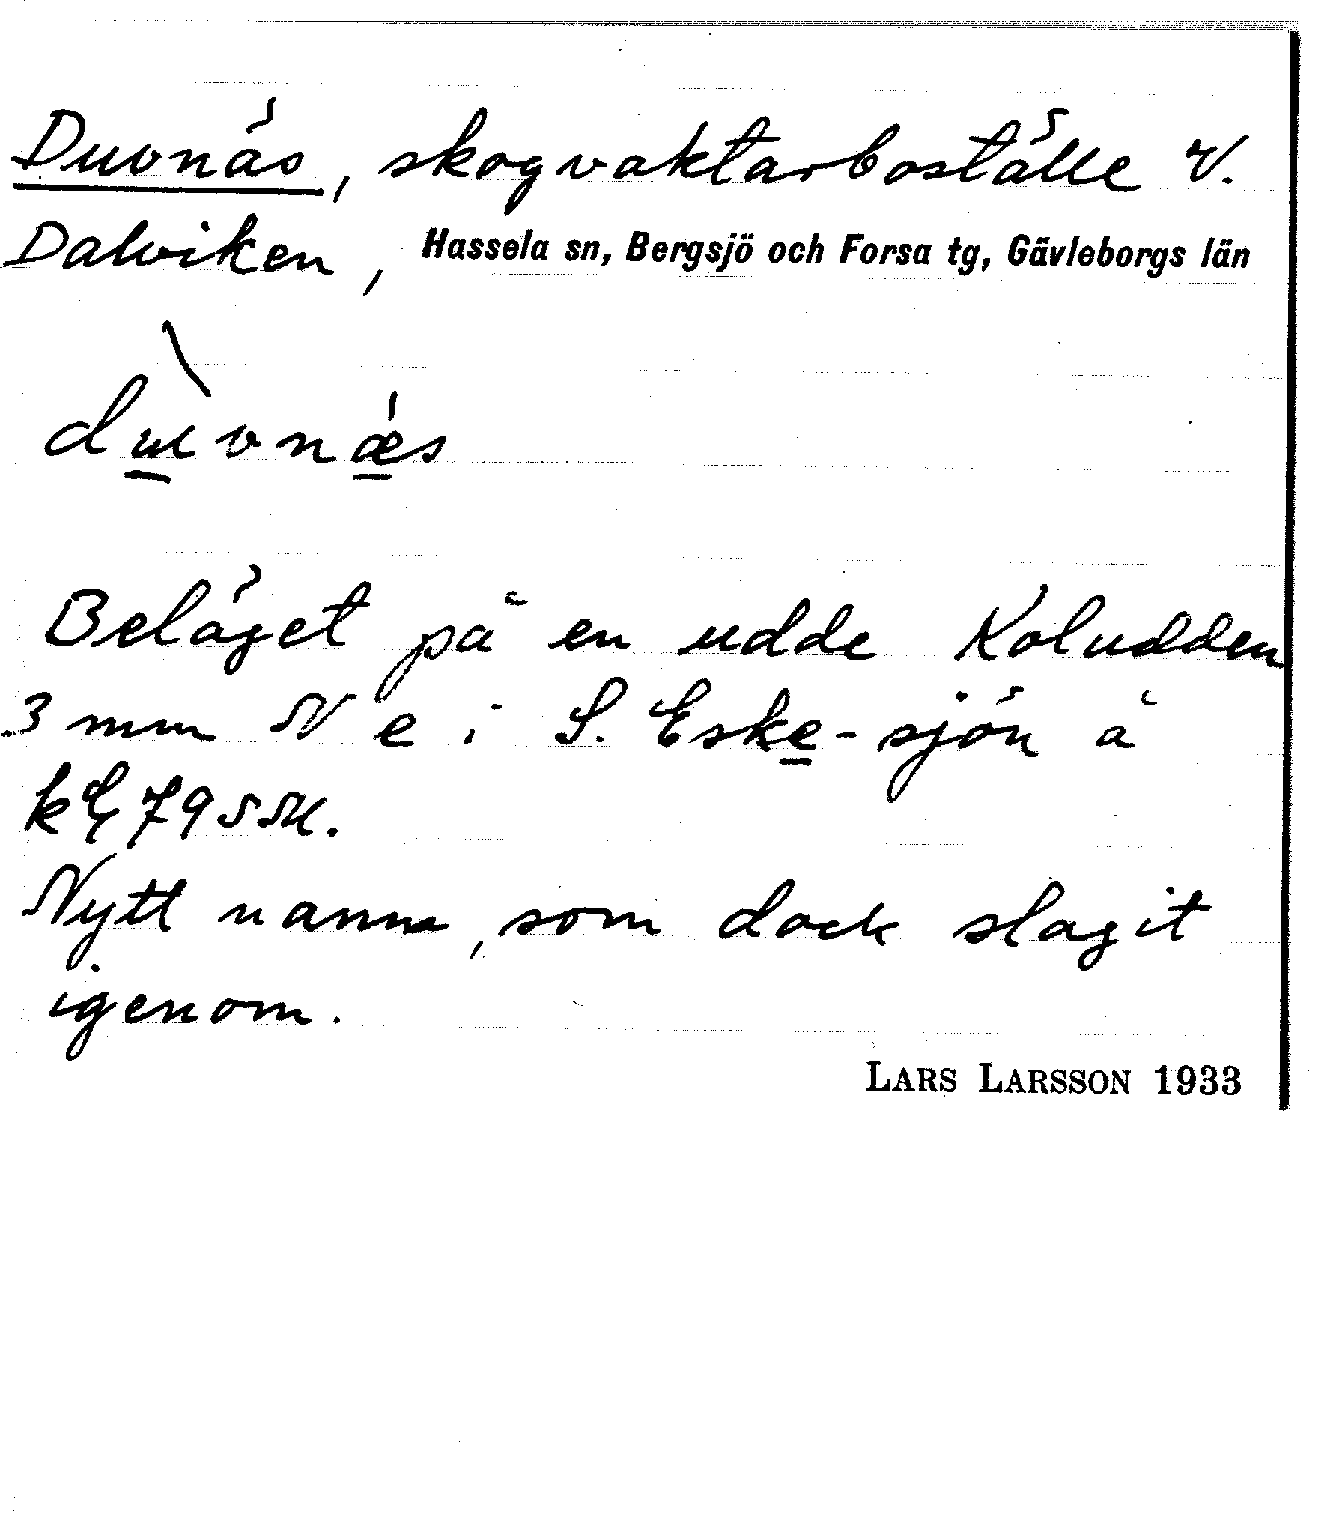 Duvnäs, skogvaktarboställe V.
Dalviken, Hassela sn, Bergsjö och Forsa tg, Gävleborgs län
duvnæs
Beläget på en udde Koludden
3 mm N e i S. Eske-sjön å
79 SM.
Nytt namn, som dock slagit
igenom.
LARS LARSSON 1933